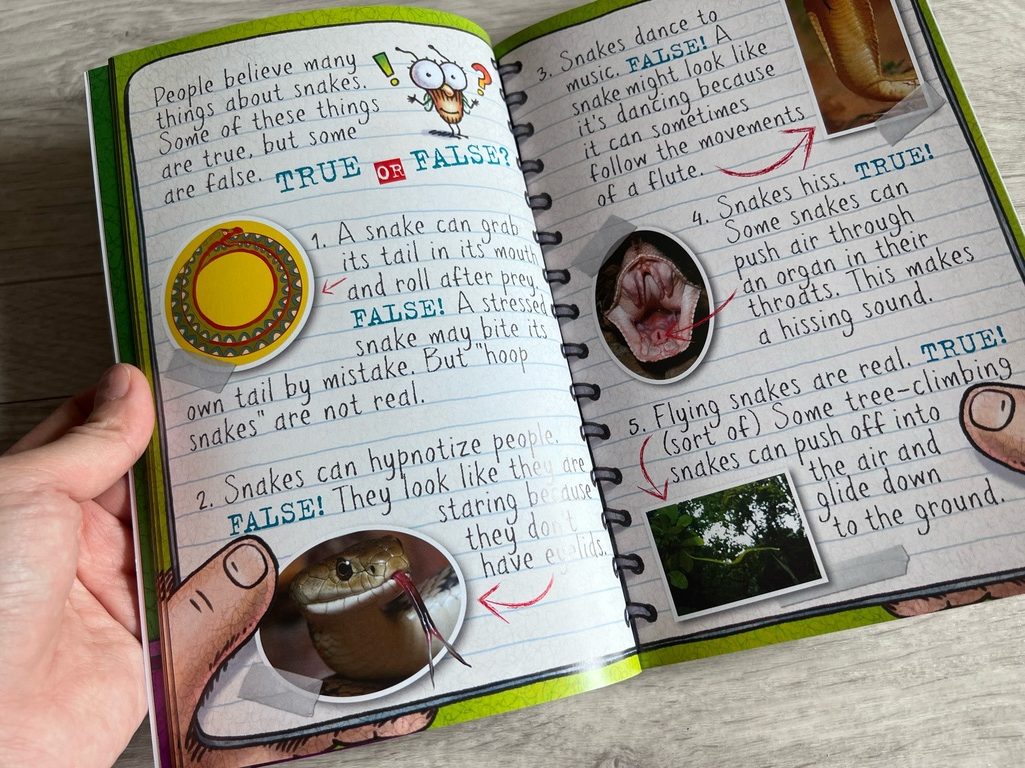 People believe many
things about snakes.
Some of these things
are true, but some
are false.
! ?
TRUE OR FALSE?
1. A snake can grab
its tail in its mouth
and roll after prey.
FALSE! A stressed
snake may bite its
own tail by mistake. But "hoop
snakes" are not real.
2. Snakes can hypnotize people.
FALSE! They look like they are
staring because
they don't
have eyelids.
3. Snakes dance to
music. FALSE! A
snake might look like
it's dancing because
it can sometimes
follow the movements
of a flute.
4. Snakes hiss. TRUE!
Some snakes can
push air through
an organ in their
throats. This makes
a hissing sound.
5. Flying snakes are real. TRUE!
(sort of) Some tree-climbing
snakes can push off into
the air and
glide down
to the ground.